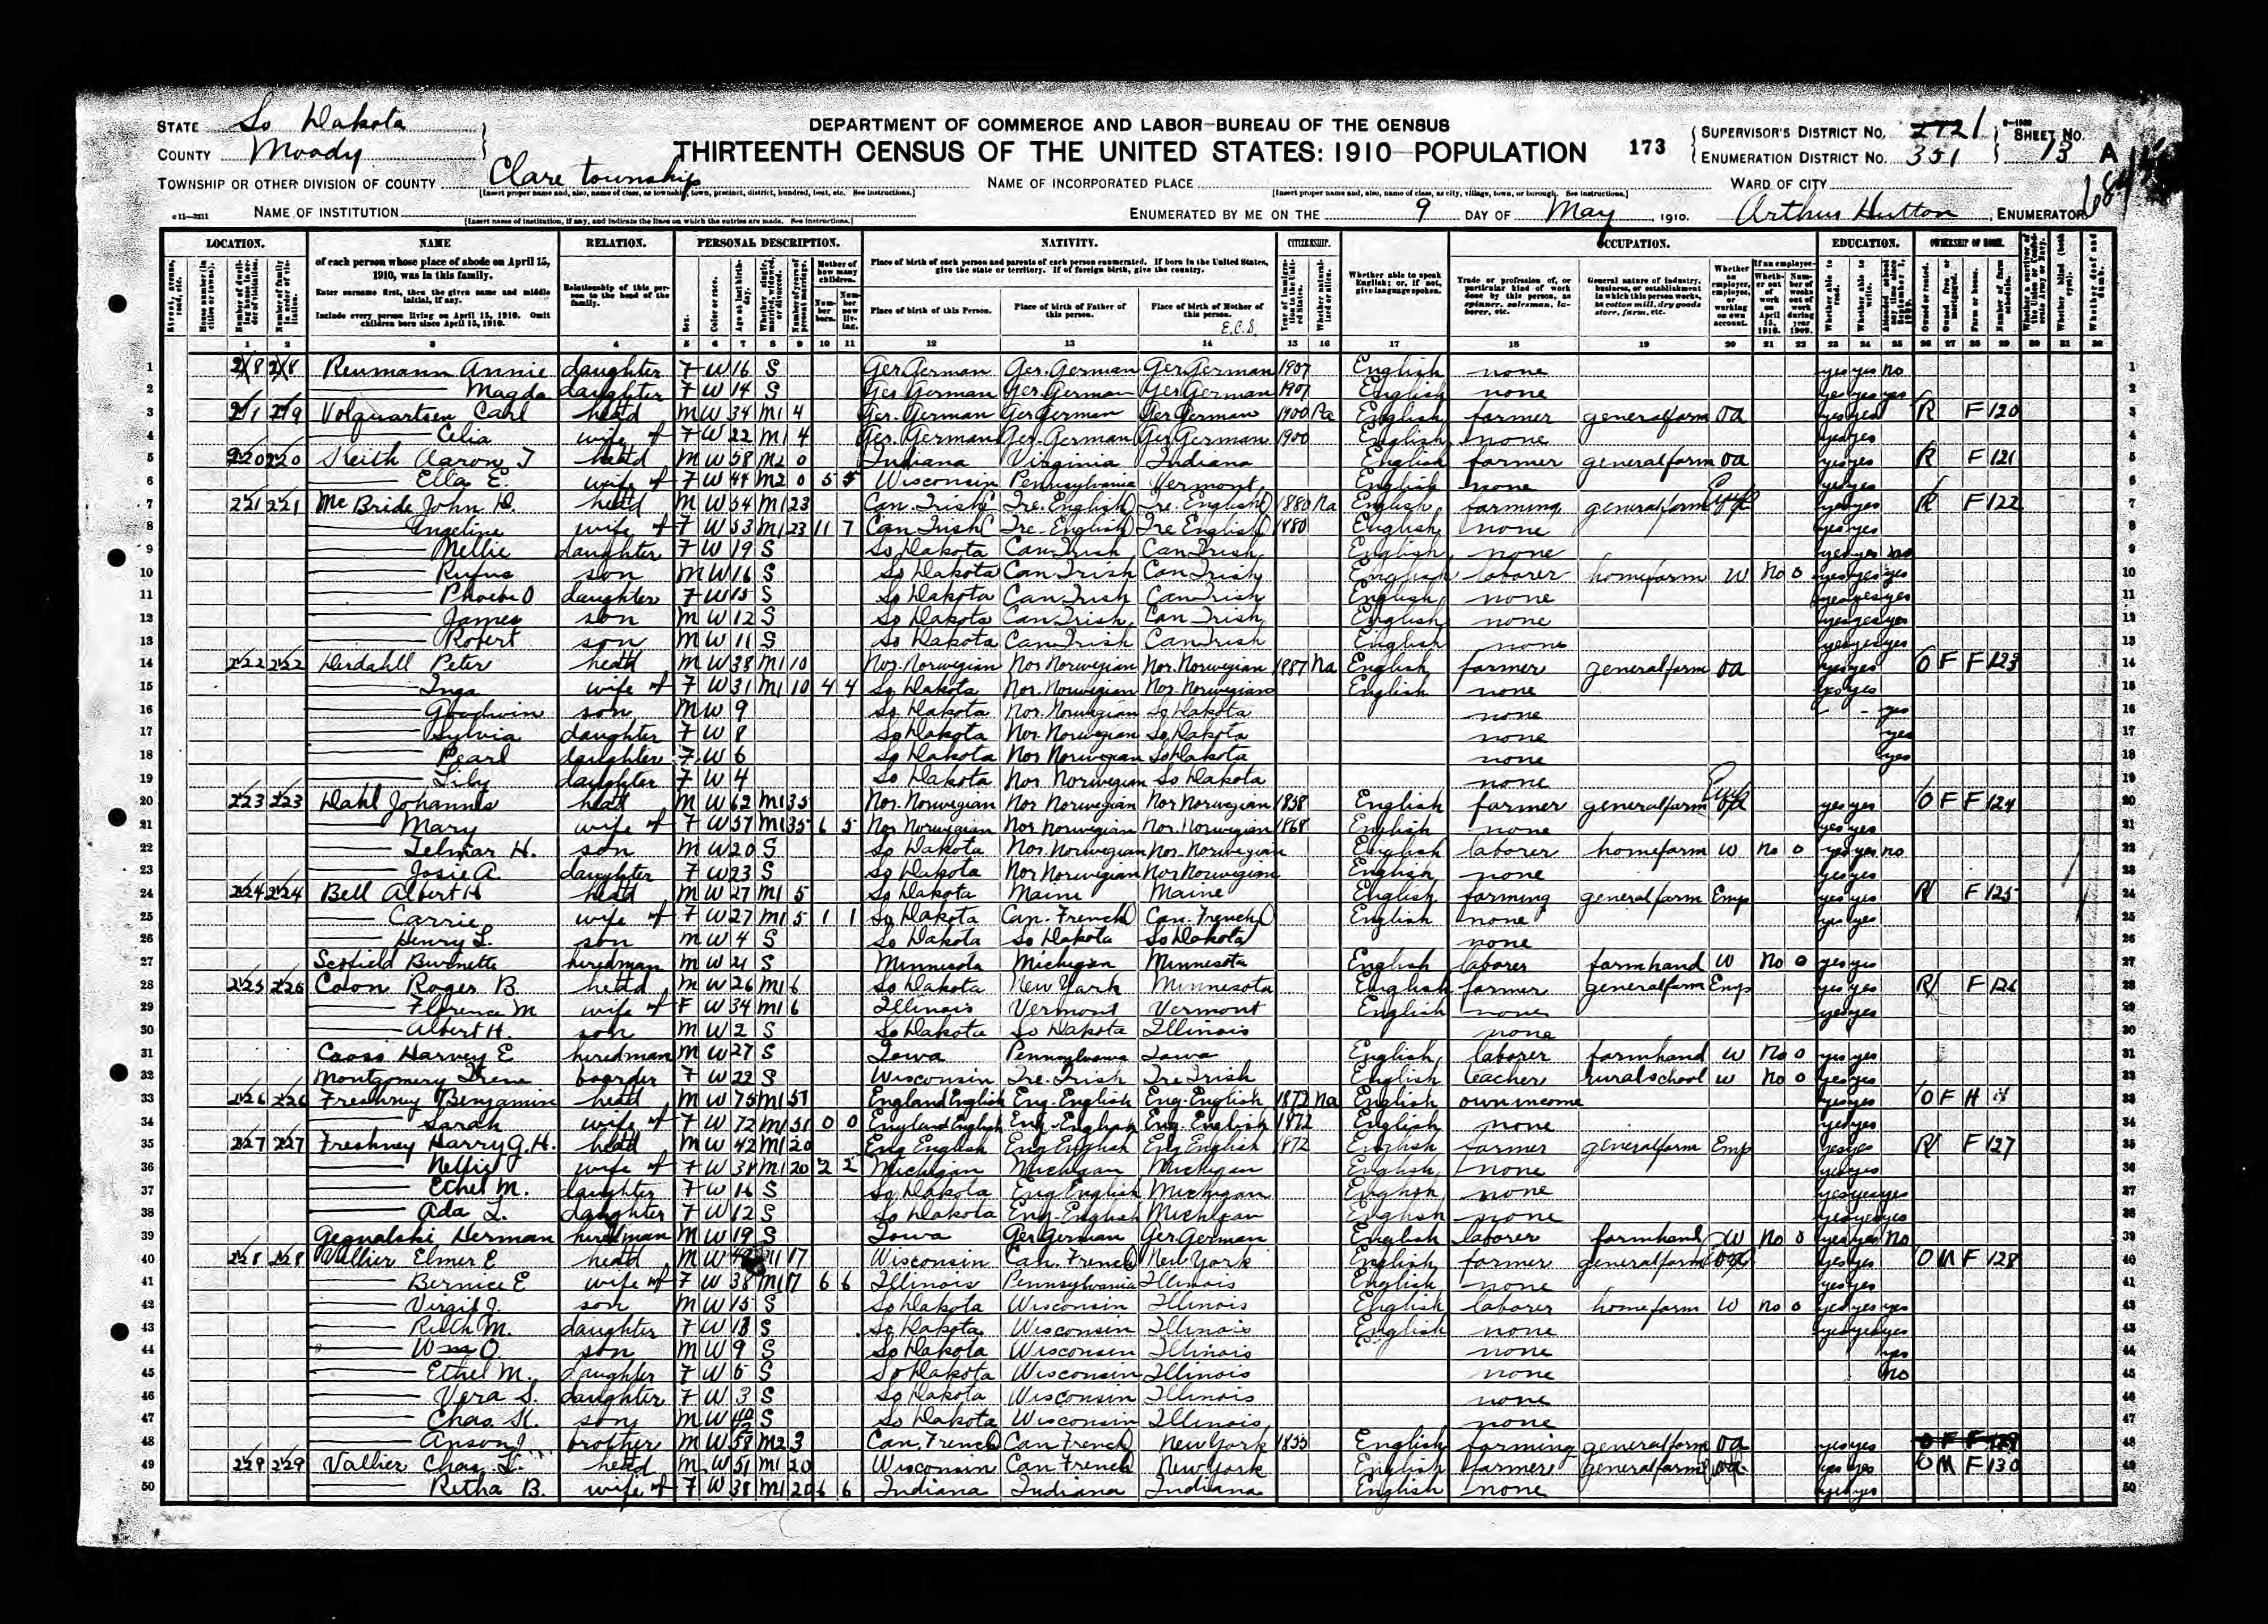 DEPARTMENT OF COMMERCE AND LABOR—BUREAU OF THE CENSUS
THIRTEENTH CENSUS OF THE UNITED STATES: 1910—POPULATION
173
STATE So Dakota
COUNTY Moody
TOWNSHIP OR OTHER DIVISION OF COUNTY Clare township
[Insert proper name and, also, name of class, as township, town, precinct, district, hundred, beat, etc. See instructions.]
NAME OF INCORPORATED PLACE
[Insert proper name and, also, name of class, as city, village, town, or borough. See instructions.]
WARD OF CITY
SUPERVISOR'S DISTRICT NO. 1
ENUMERATION DISTRICT NO. 351
SHEET NO. 13 A
NAME OF INSTITUTION
[Insert name of institution, if any, and indicate the lines on which the entries are made. See instructions.]
ENUMERATED BY ME ON THE 9 DAY OF May, 1910. Arthur Hutton, ENUMERATOR
LOCATION. NAME RELATION. PERSONAL DESCRIPTION. NATIVITY. CITIZENSHIP. OCCUPATION. EDUCATION. OWNERSHIP OF HOME.
of each person whose place of abode on April 15, 1910, was in this family.
Enter surname first, then the given name and middle initial, if any.
Include every person living on April 15, 1910. Omit children born since April 15, 1910.
Relationship of this person to the head of the family.
Place of birth of each person and parents of each person enumerated. If born in the United States, give the state or territory. If of foreign birth, give the country.
Place of birth of this Person. Place of birth of Father of this person. Place of birth of Mother of this person.
Whether able to speak English; or, if not, give language spoken.
1 Annie daughter F W 16 S Ger. German Ger. German Ger German 1907 English none yes yes no
2 Magda daughter F W 14 S Ger German Ger. German Ger German 1907 English none yes yes yes
3 219 Volquartsen Carl head M W 34 M1 4 Ger. German Ger German Ger German 1900 Pa English farmer general farm oa yes yes R F 120
4 Celia wife of F W 22 M1 4 Ger. German Ger. German Ger German 1900 English none yes yes
5 220 220 Keith Aaron T head M W 58 M2 0 Indiana Virginia Indiana English farmer general farm oa yes yes R F 121
6 Ella E. wife of F W 44 M2 0 5 5 Wisconsin Pennsylvania Vermont English none yes yes
7 221 221 McBride John head M W 54 M1 23 Can. Irish Ire. English Ire. English 1880 Na English farming general farm yes yes R F 122
8 Angeline wife of F W 53 M1 23 11 7 Can Irish Ire-English Ire English 1880 English none yes yes
9 Nellie daughter F W 19 S So Dakota Can Irish Can Irish English none yes yes no
10 Rufus son M W 16 S So Dakota Can Irish Can Irish English laborer home farm W no 0 yes yes yes
11 Phoebe O daughter F W 15 S So Dakota Can Irish Can Irish English none yes yes yes
12 James son M W 12 S So Dakota Can Irish Can Irish English none yes yes yes
13 Robert son M W 11 S So Dakota Can Irish Can Irish English none yes yes yes
14 222 222 Dirdahl Peter head M W 38 M1 10 Nor. Norwegian Nor Norwegian Nor. Norwegian 1887 Na English farmer general farm oa yes yes O F F 123
15 Inga wife of F W 31 M1 10 4 4 So Dakota Nor. Norwegian Nor. Norwegian English none yes yes
16 Goodwin son M W 9 So Dakota Nor. Norwegian So Dakota none yes
17 Sylvia daughter F W 8 So Dakota Nor. Norwegian So Dakota none yes
18 Pearl daughter F W 6 So Dakota Nor Norwegian So Dakota none yes
19 Lily daughter F W 4 So Dakota Nor Norwegian So Dakota none
20 223 223 Dahl Johannes head M W 62 M1 35 Nor. Norwegian Nor Norwegian Nor Norwegian English farmer general farm yes yes O F F 124
21 Mary wife of F W 57 M1 35 6 5 Nor Norwegian Nor Norwegian Nor. Norwegian 1868 English none yes yes
22 Telmar H. son M W 20 S So Dakota Nor. Norwegian Nor. Norwegian English laborer home farm W no 0 yes yes no
23 Josie A. daughter F W 23 S So Dakota Nor Norwegian Nor Norwegian English none yes yes
24 224 224 Bell Albert H head M W 27 M1 5 So Dakota Maine Maine English farming general farm Emp yes yes R F 125
25 Carrie wife of F W 27 M1 5 1 1 So Dakota Can. French Can. French English none yes yes
26 Henry L. son M W 4 S So Dakota So Dakota So Dakota none
27 Scofield Burnette hired man M W 21 S Minnesota Michigan Minnesota English laborer farm hand W No 0 yes yes
28 225 225 Coon Roger B head M W 26 M1 6 So Dakota New York Minnesota English farmer general farm Emp yes yes R F 126
29 Florence M wife of F W 34 M1 6 Illinois Vermont Vermont English none yes yes
30 Albert H. son M W 2 S So Dakota So Dakota Illinois none
31 Harvey E hired man M W 27 S Iowa Pennsylvania Iowa English laborer farm hand W No 0 yes yes
32 Montgomery Irene boarder F W 22 S Wisconsin Ire. Irish Ire Irish English teacher rural school W No 0 yes yes
33 226 226 Freshney Benjamin head M W 75 M1 51 England English Eng. English Eng. English 1872 Na English own income yes yes O F H
34 Sarah wife of F W 72 M1 51 0 0 England English Eng-English Eng. English 1872 English none yes yes
35 227 227 Freshney Harry G. H. head M W 42 M1 20 Eng English Eng English Eng English 1872 English farmer general farm Emp yes yes R F 127
36 Nellie wife of F W 38 M1 20 2 2 Michigan Michigan Michigan English none yes yes
37 Ethel M. daughter F W 16 S So Dakota Eng English Michigan English none yes yes yes
38 Ada L. daughter F W 12 S So Dakota Eng-English Michigan English none yes yes yes
39 Herman hired man M W 19 S Iowa Ger German Ger German English laborer farm hand W No 0 yes yes No
40 228 228 Vallier Elmer E head M W 17 Wisconsin Can. French New York English farmer general farm yes yes O M F 128
41 Bernice E wife of F W 38 M1 17 6 6 Illinois Pennsylvania Illinois English none yes yes
42 Virgil J. son M W 15 S So Dakota Wisconsin Illinois English laborer home farm W no 0 yes yes yes
43 Ruth M. daughter F W 13 S So Dakota Wisconsin Illinois English none yes yes yes
44 Wm O. son M W 9 S So Dakota Wisconsin Illinois none yes
45 Ethel M. daughter F W 5 S So Dakota Wisconsin Illinois none no
46 Vera S. daughter F W 3 S So Dakota Wisconsin Illinois none
47 Chas. K. son M W 10/12 S So Dakota Wisconsin Illinois none
48 Anson J brother M W 58 M2 3 Can. French Can French New York English farming general farm oa yes yes O F F 129
49 229 229 Vallier Chas. L. head M W 51 M1 20 Wisconsin Can French New York English farmer general farm oa yes yes O M F 130
50 Retha B. wife of F W 38 M1 20 6 6 Indiana Indiana Indiana English none yes yes